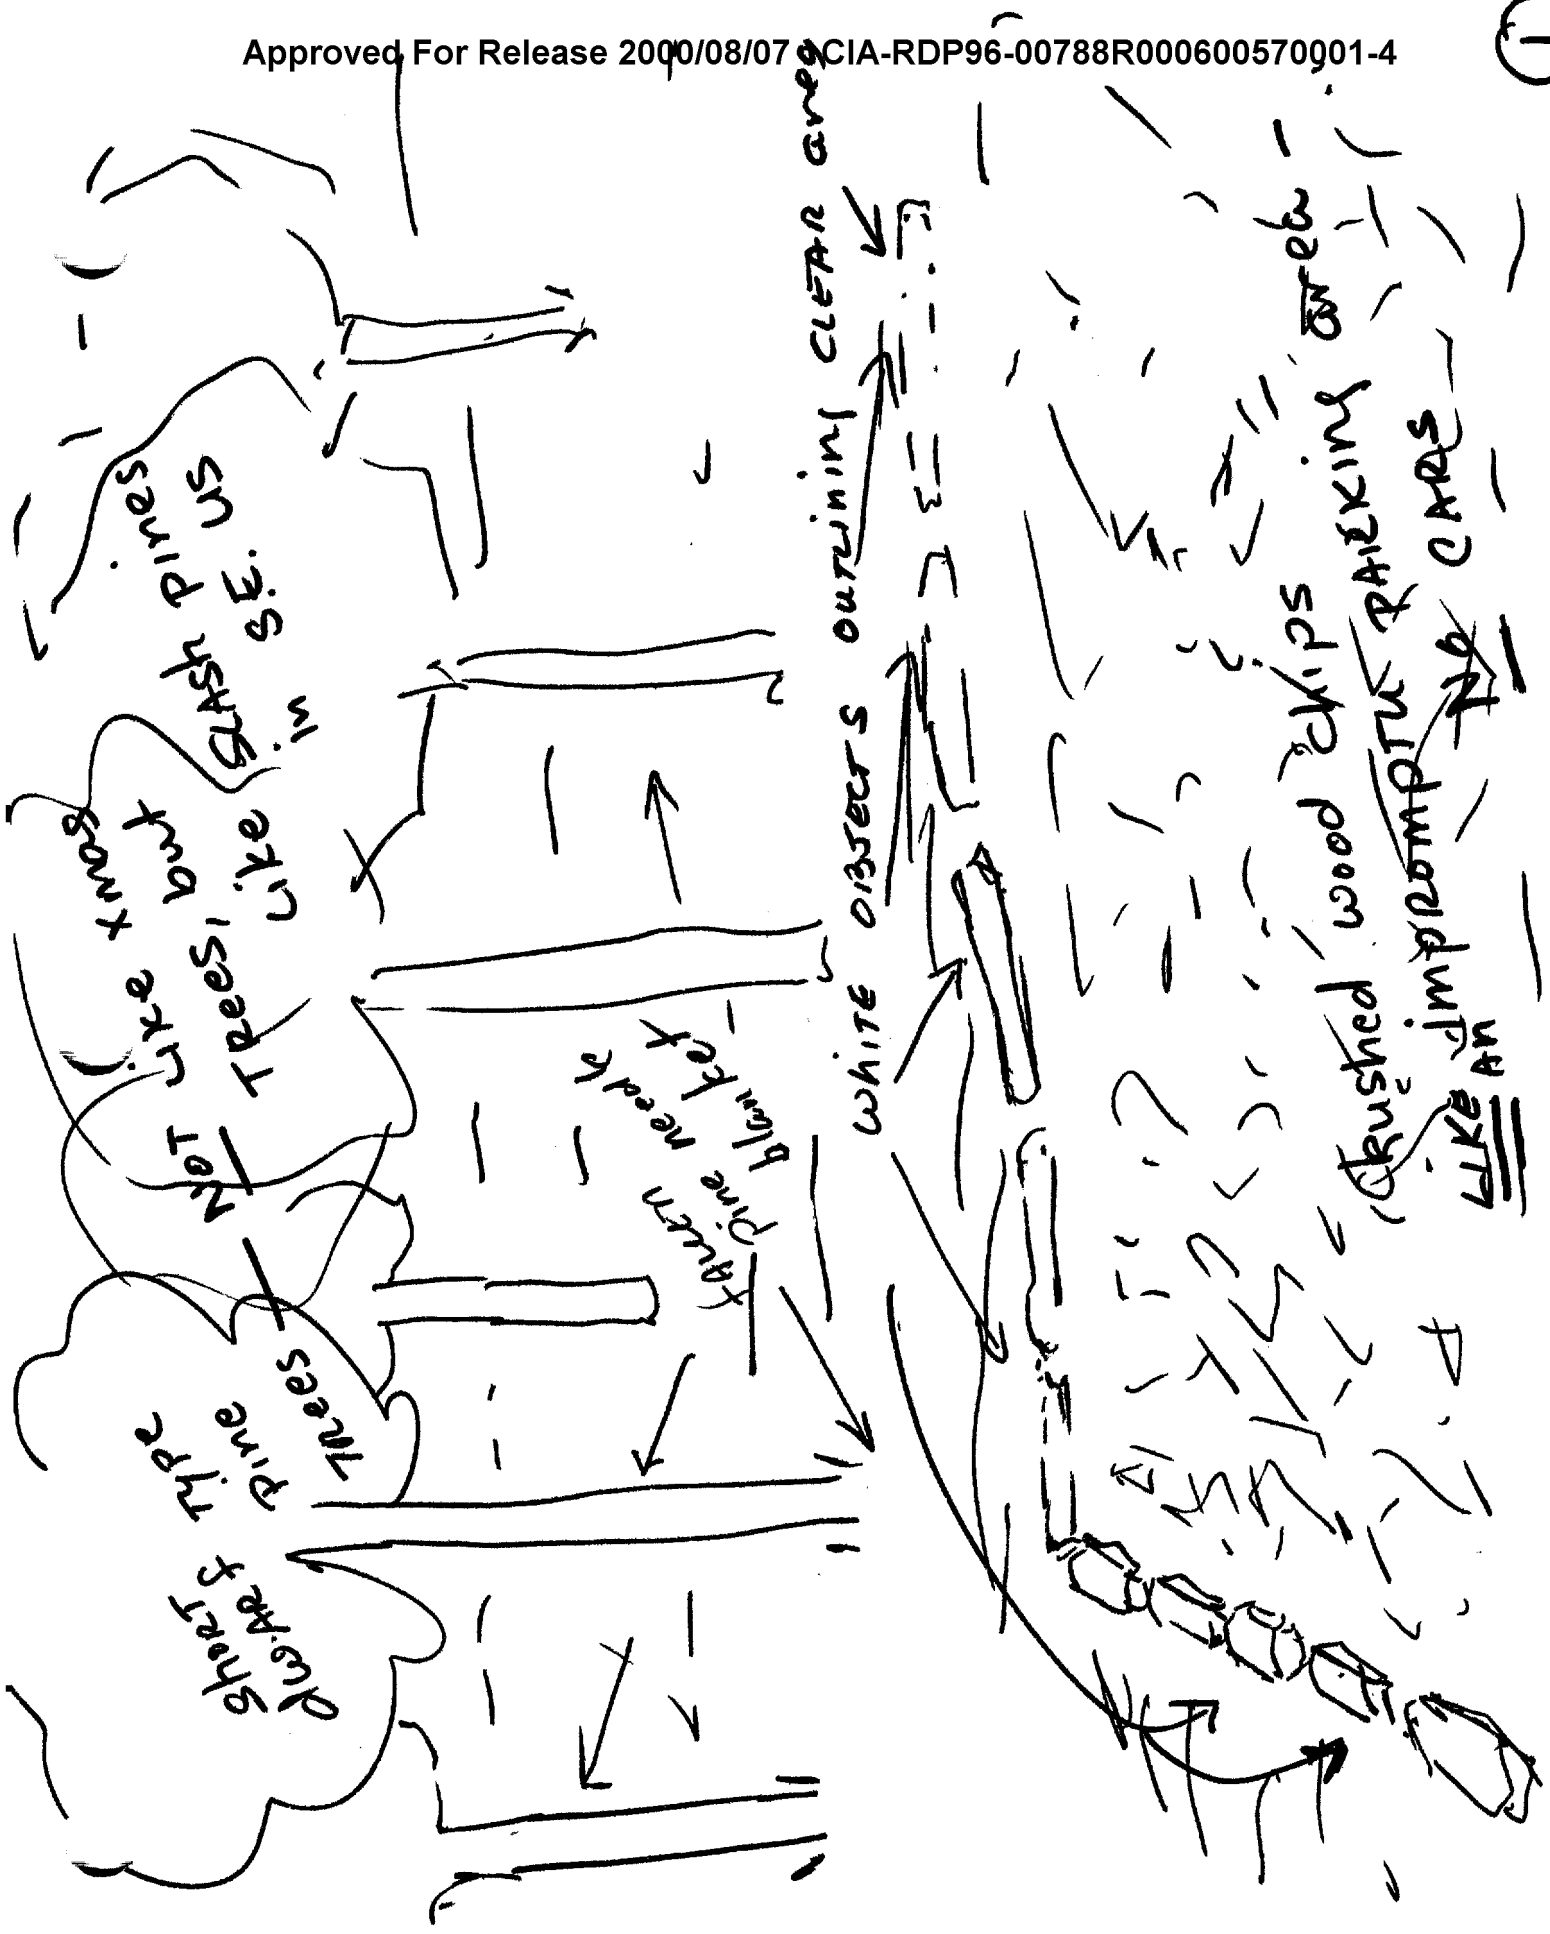 Approved For Release 2000/08/07 : CIA-RDP96-00788R000600570001-4
1
Short TYPE
dwarf pine
Trees — NOT like xmas
Trees, but
Like SLASH pines
in S.E. US
fallen
pine needle
blanket
White OBJECTS OUTLINING CLEAR area
Crushed wood chips
LIKE AN IMPROMPTU PARKING area -
NO CARS